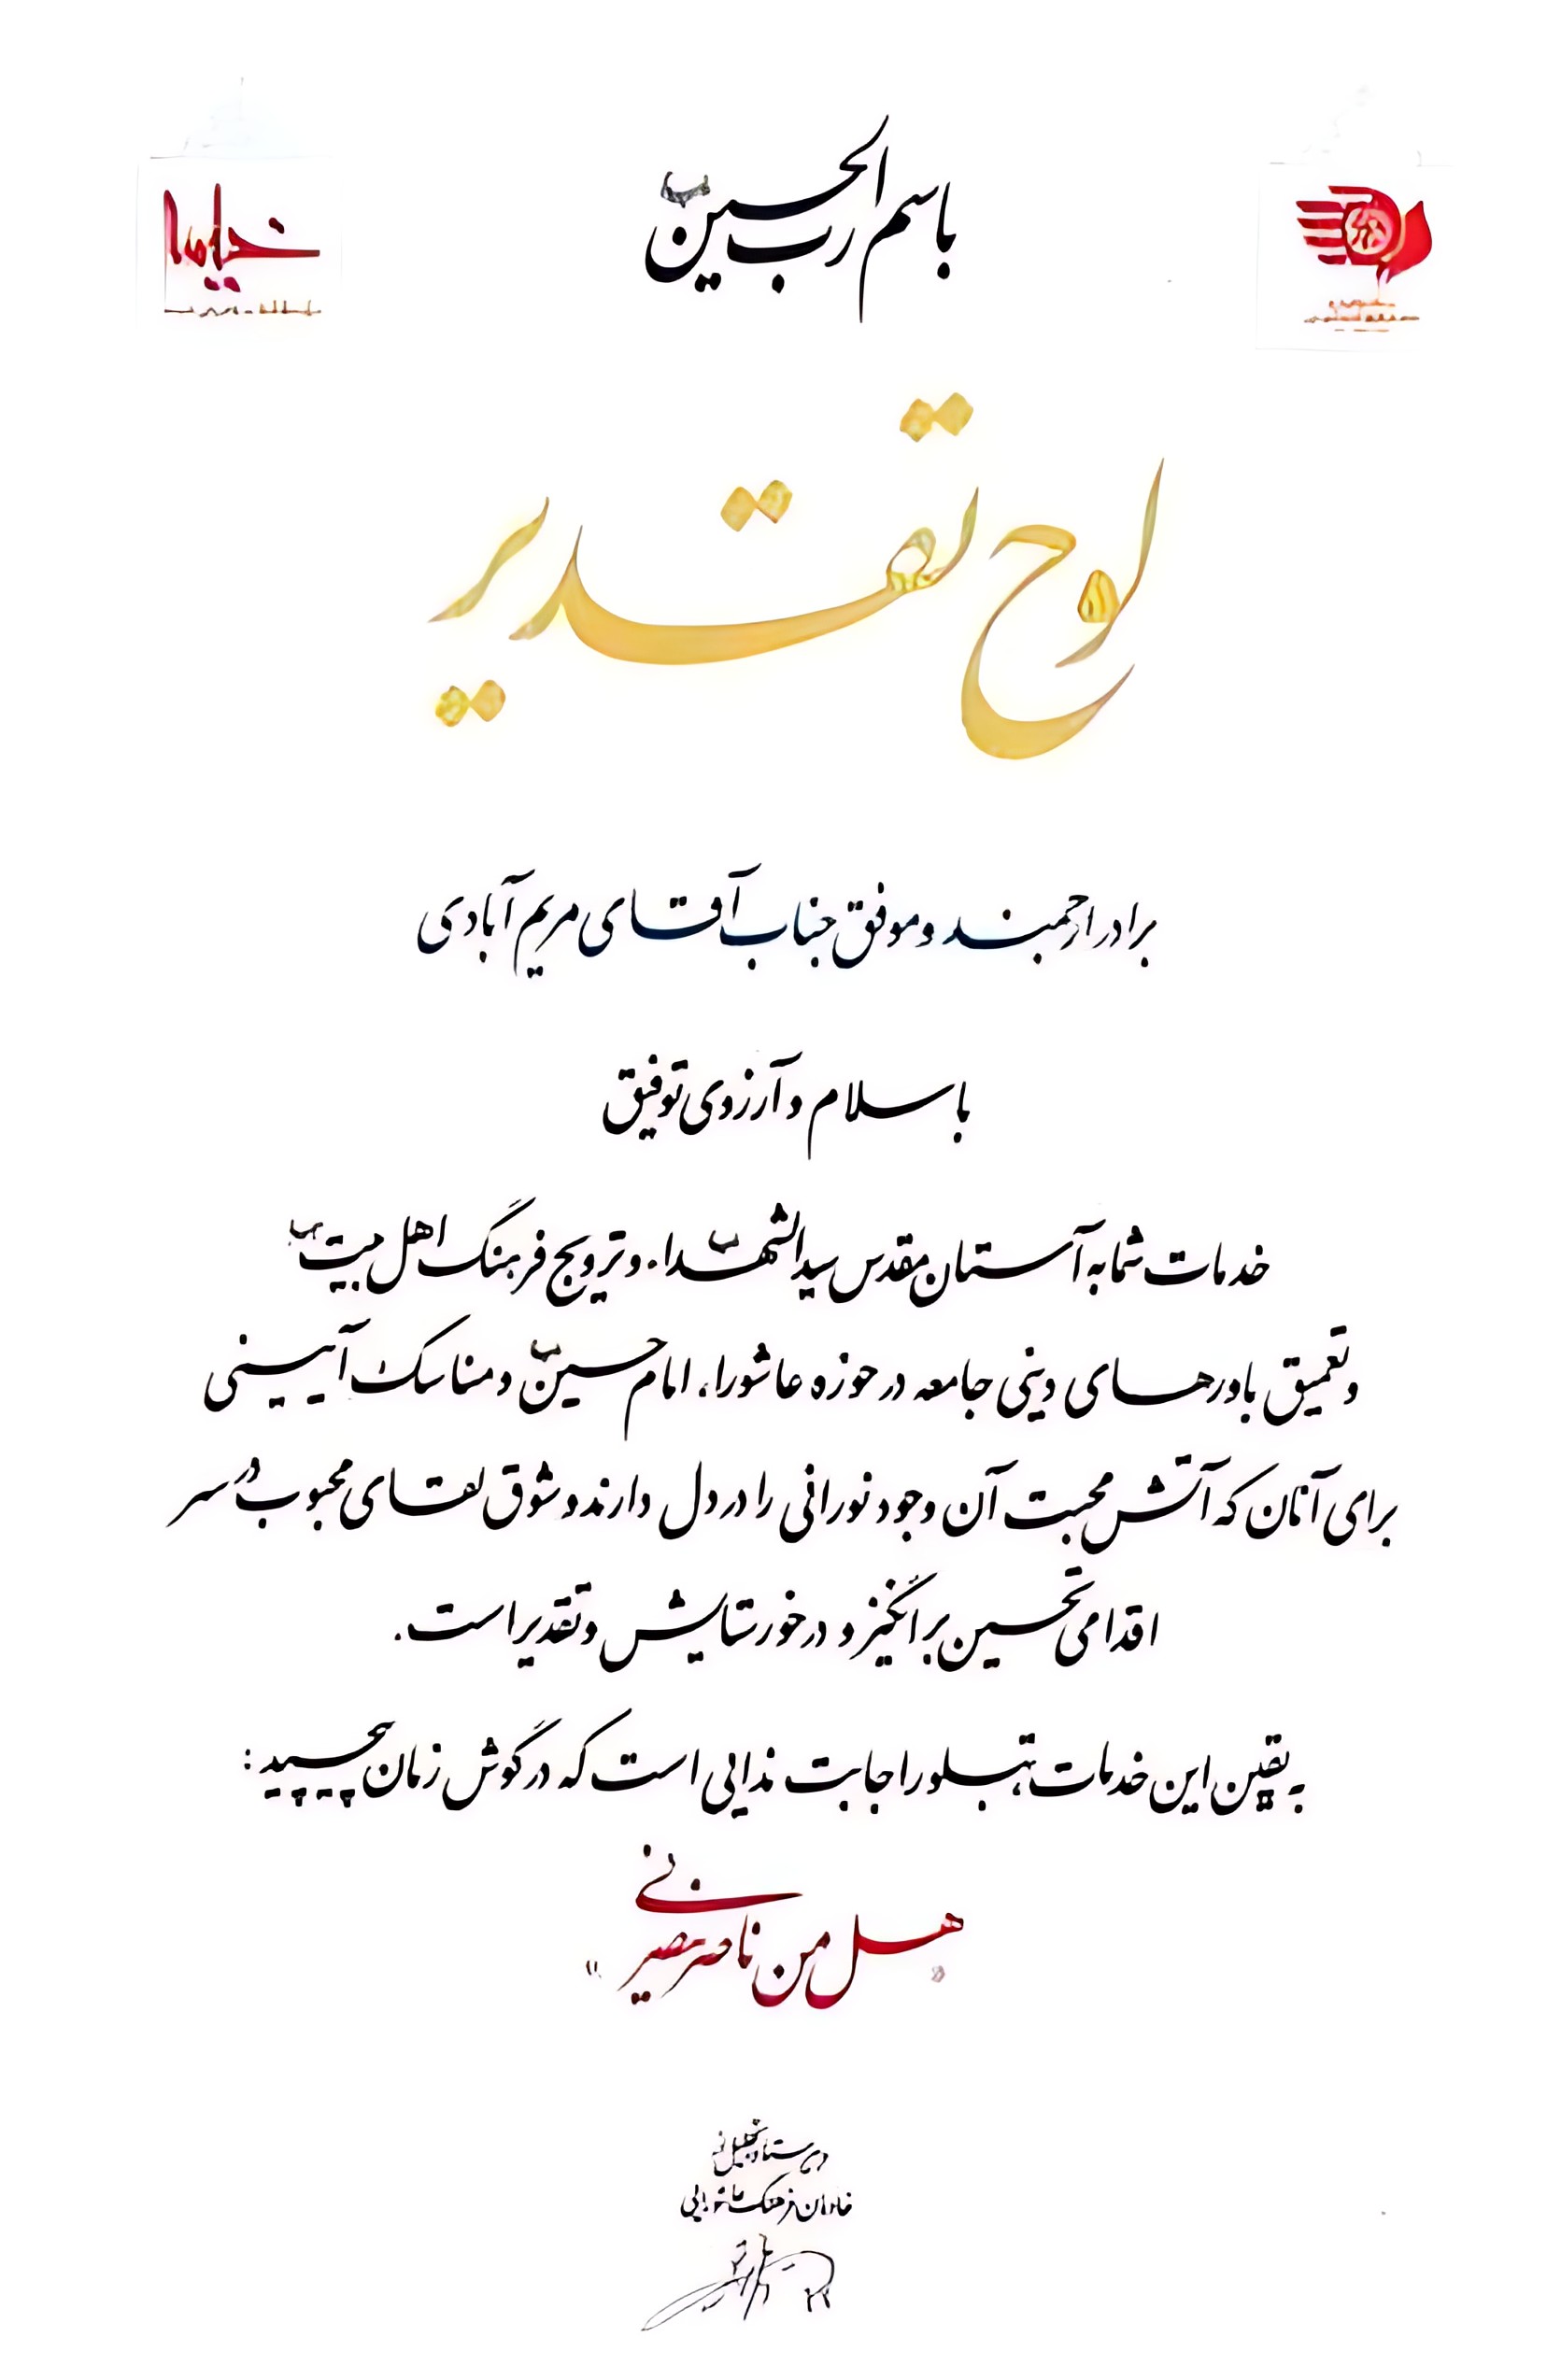 باسم رب الحسین
لوح تقدیر
برادر ارجمند و موفق جناب آقای مریم آبادی
با سلام و آرزوی توفیق
خدمات شما به آستان مقدس سیدالشهداء و ترویج فرهنگ اهل بیت
و تعمیق باورهای دینی جامعه در حوزه عاشورا، امام حسین و مناسک آیینی
برای آنان که آتش محبت آن وجود نورانی را در دل دارند و شوق لقای محبوب در سر
اقدامی تحسین برانگیز و درخور ستایش و تقدیر است.
به یقین این خدمات، تبلور اجابت ندایی است که در گوش زمان پیچید:
«هل من ناصر ینصرنی»
دبیر ستاد تجلیل از
خادمان فرهنگ عاشورایی